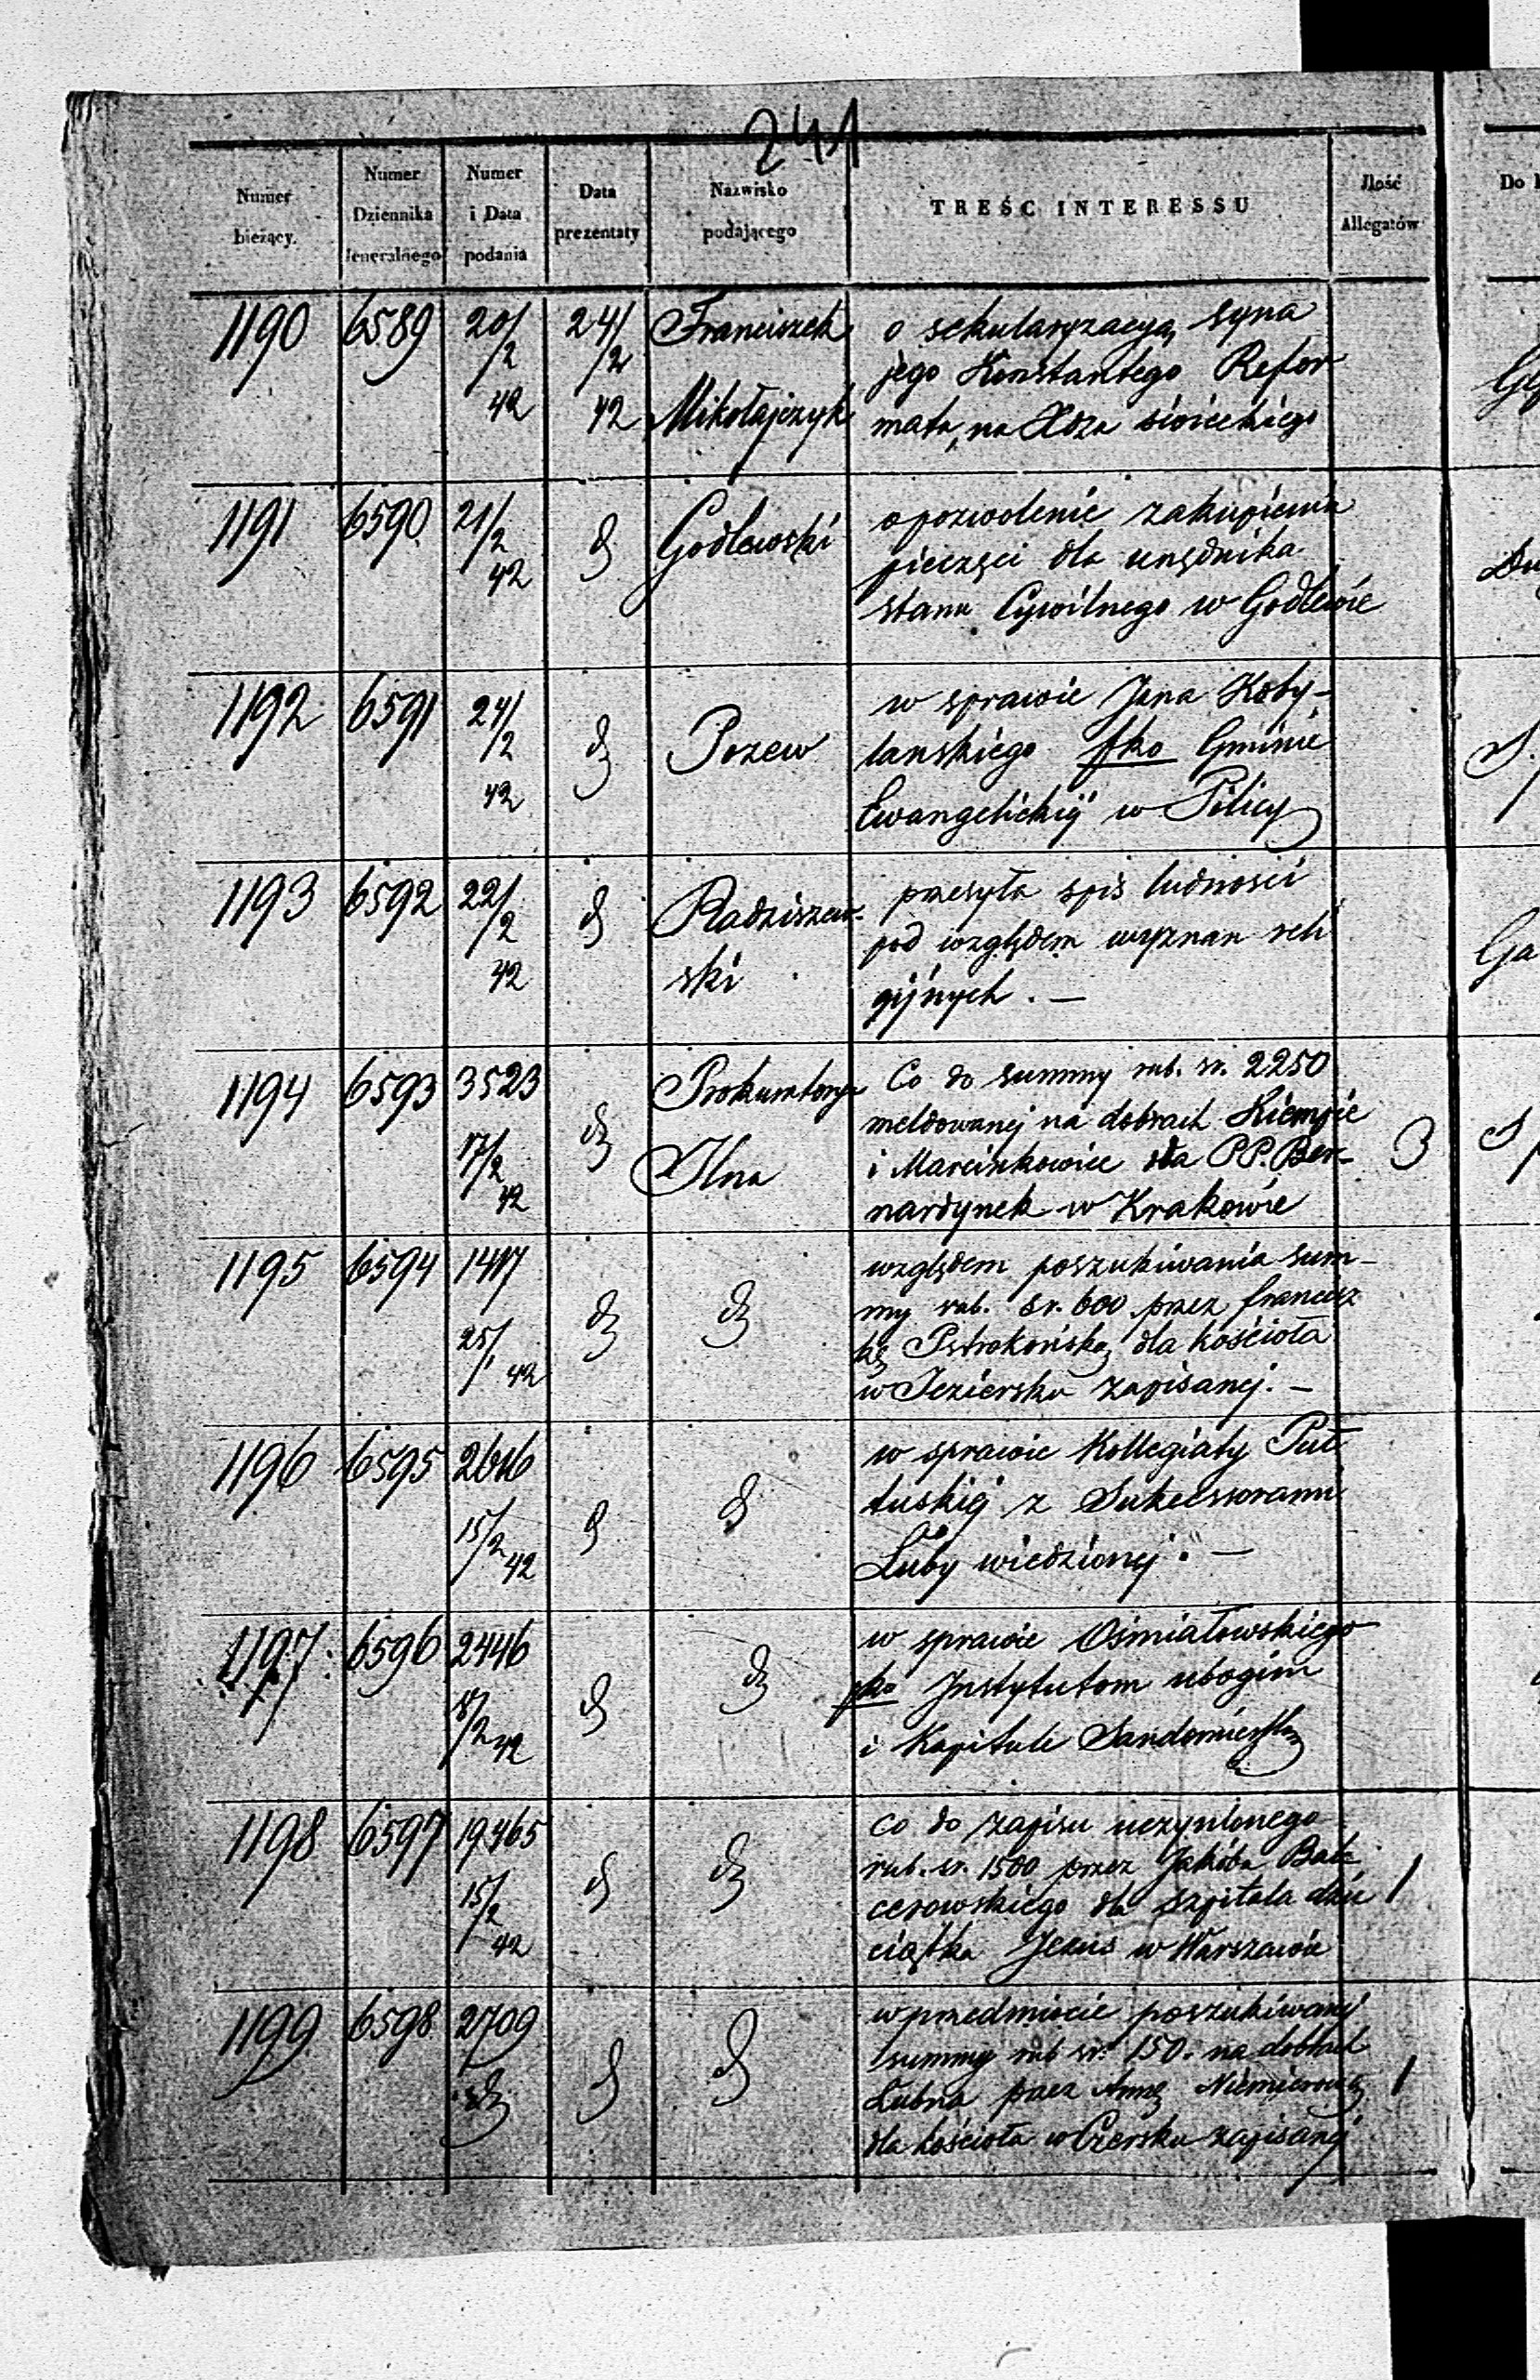 241
Numer bieżący.
Numer Dziennika Jeneralnego
Numer i Data podania
Data prezentaty
Nazwisko podającego
TREŚĆ INTERESSU
Ilość Allegatów
1190 6589 20/2 42 24/2 42 Franciszek Mikołajczyk
o sekularyzacyą syna
jego Konstantego Refor
mata, na Xdza świeckiego
1191 6590 21/2 42 d Godlewski
o pozwolenie zakupienia
pieczęci dla urzędnika
stanu Cywilnego w Godlewie
1192 6591 24/2 42 d Pozew
w sprawie Jana Koby-
lanskiego pko Gminie
Ewangelickiej w Pilicy
1193 6592 22/2 42 d Radziszew-
ski
przesyła spis ludności
pod względem wyznan reli
gijnych. —
1194 6593 3523 17/2 42 d Prokuratorya
Co do summy rub. sr. 2250
meldowanej na dobrach Kiempie
i Marcinkowice dla PP. Ber-
nardynek w Krakowie
3
1195 6594 1417 25/1 42 d d
względem poszukiwania sum-
my rub. sr. 600 przez francisz
kę Pstrokońską dla kościoła
w Jeziersku zapisanej. —
1196 6595 2616 15/2 42 d d
w sprawie Kollegiaty Puł
tuskiej z Sukcessorami
Luby wiedzionej. —
1197 6596 2446 18/2 42 d d
w sprawie Ośmiałowskiego
pko Instytutom ubogim
i Kapitule Sandomierskiej
1198 6597 19465 15/2 42 d d
co do zapisu uczynionego
rub. sr. 1500 przez Jakóba Bal
cerowskiego dla szpitala dzie
ciątka Jezus w Warszawie
1
1199 6598 2709 d d d
w przedmiocie poszukiwanej
summy rub sr. 150. na dobrach
Łubna przez Annę
dla kościoła w Czersku zapisanej
1